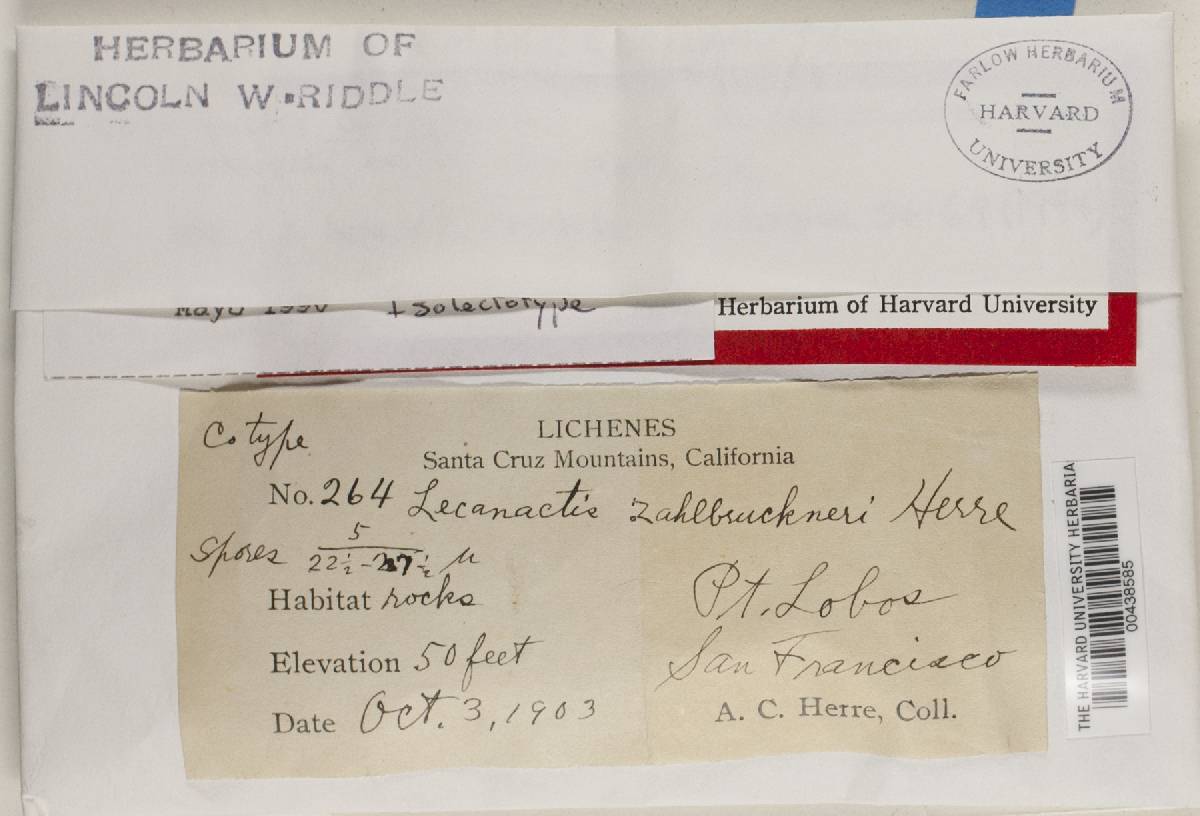 HERBARIUM OF
LINCOLN W. RIDDLE
FARLOW HERBARIUM
HARVARD
UNIVERSITY
Isolectotype
Herbarium of Harvard University
Cotype
LICHENES
Santa Cruz Mountains, California
No. 264 Lecanactis zahlbruckneri Herre
Spores 5
22½-27½ µ
Habitat rocks
Pt. Lobos
Elevation 50 feet
San Francisco
Date Oct. 3, 1903
A. C. Herre, Coll.
THE HARVARD UNIVERSITY HERBARIA
00438585